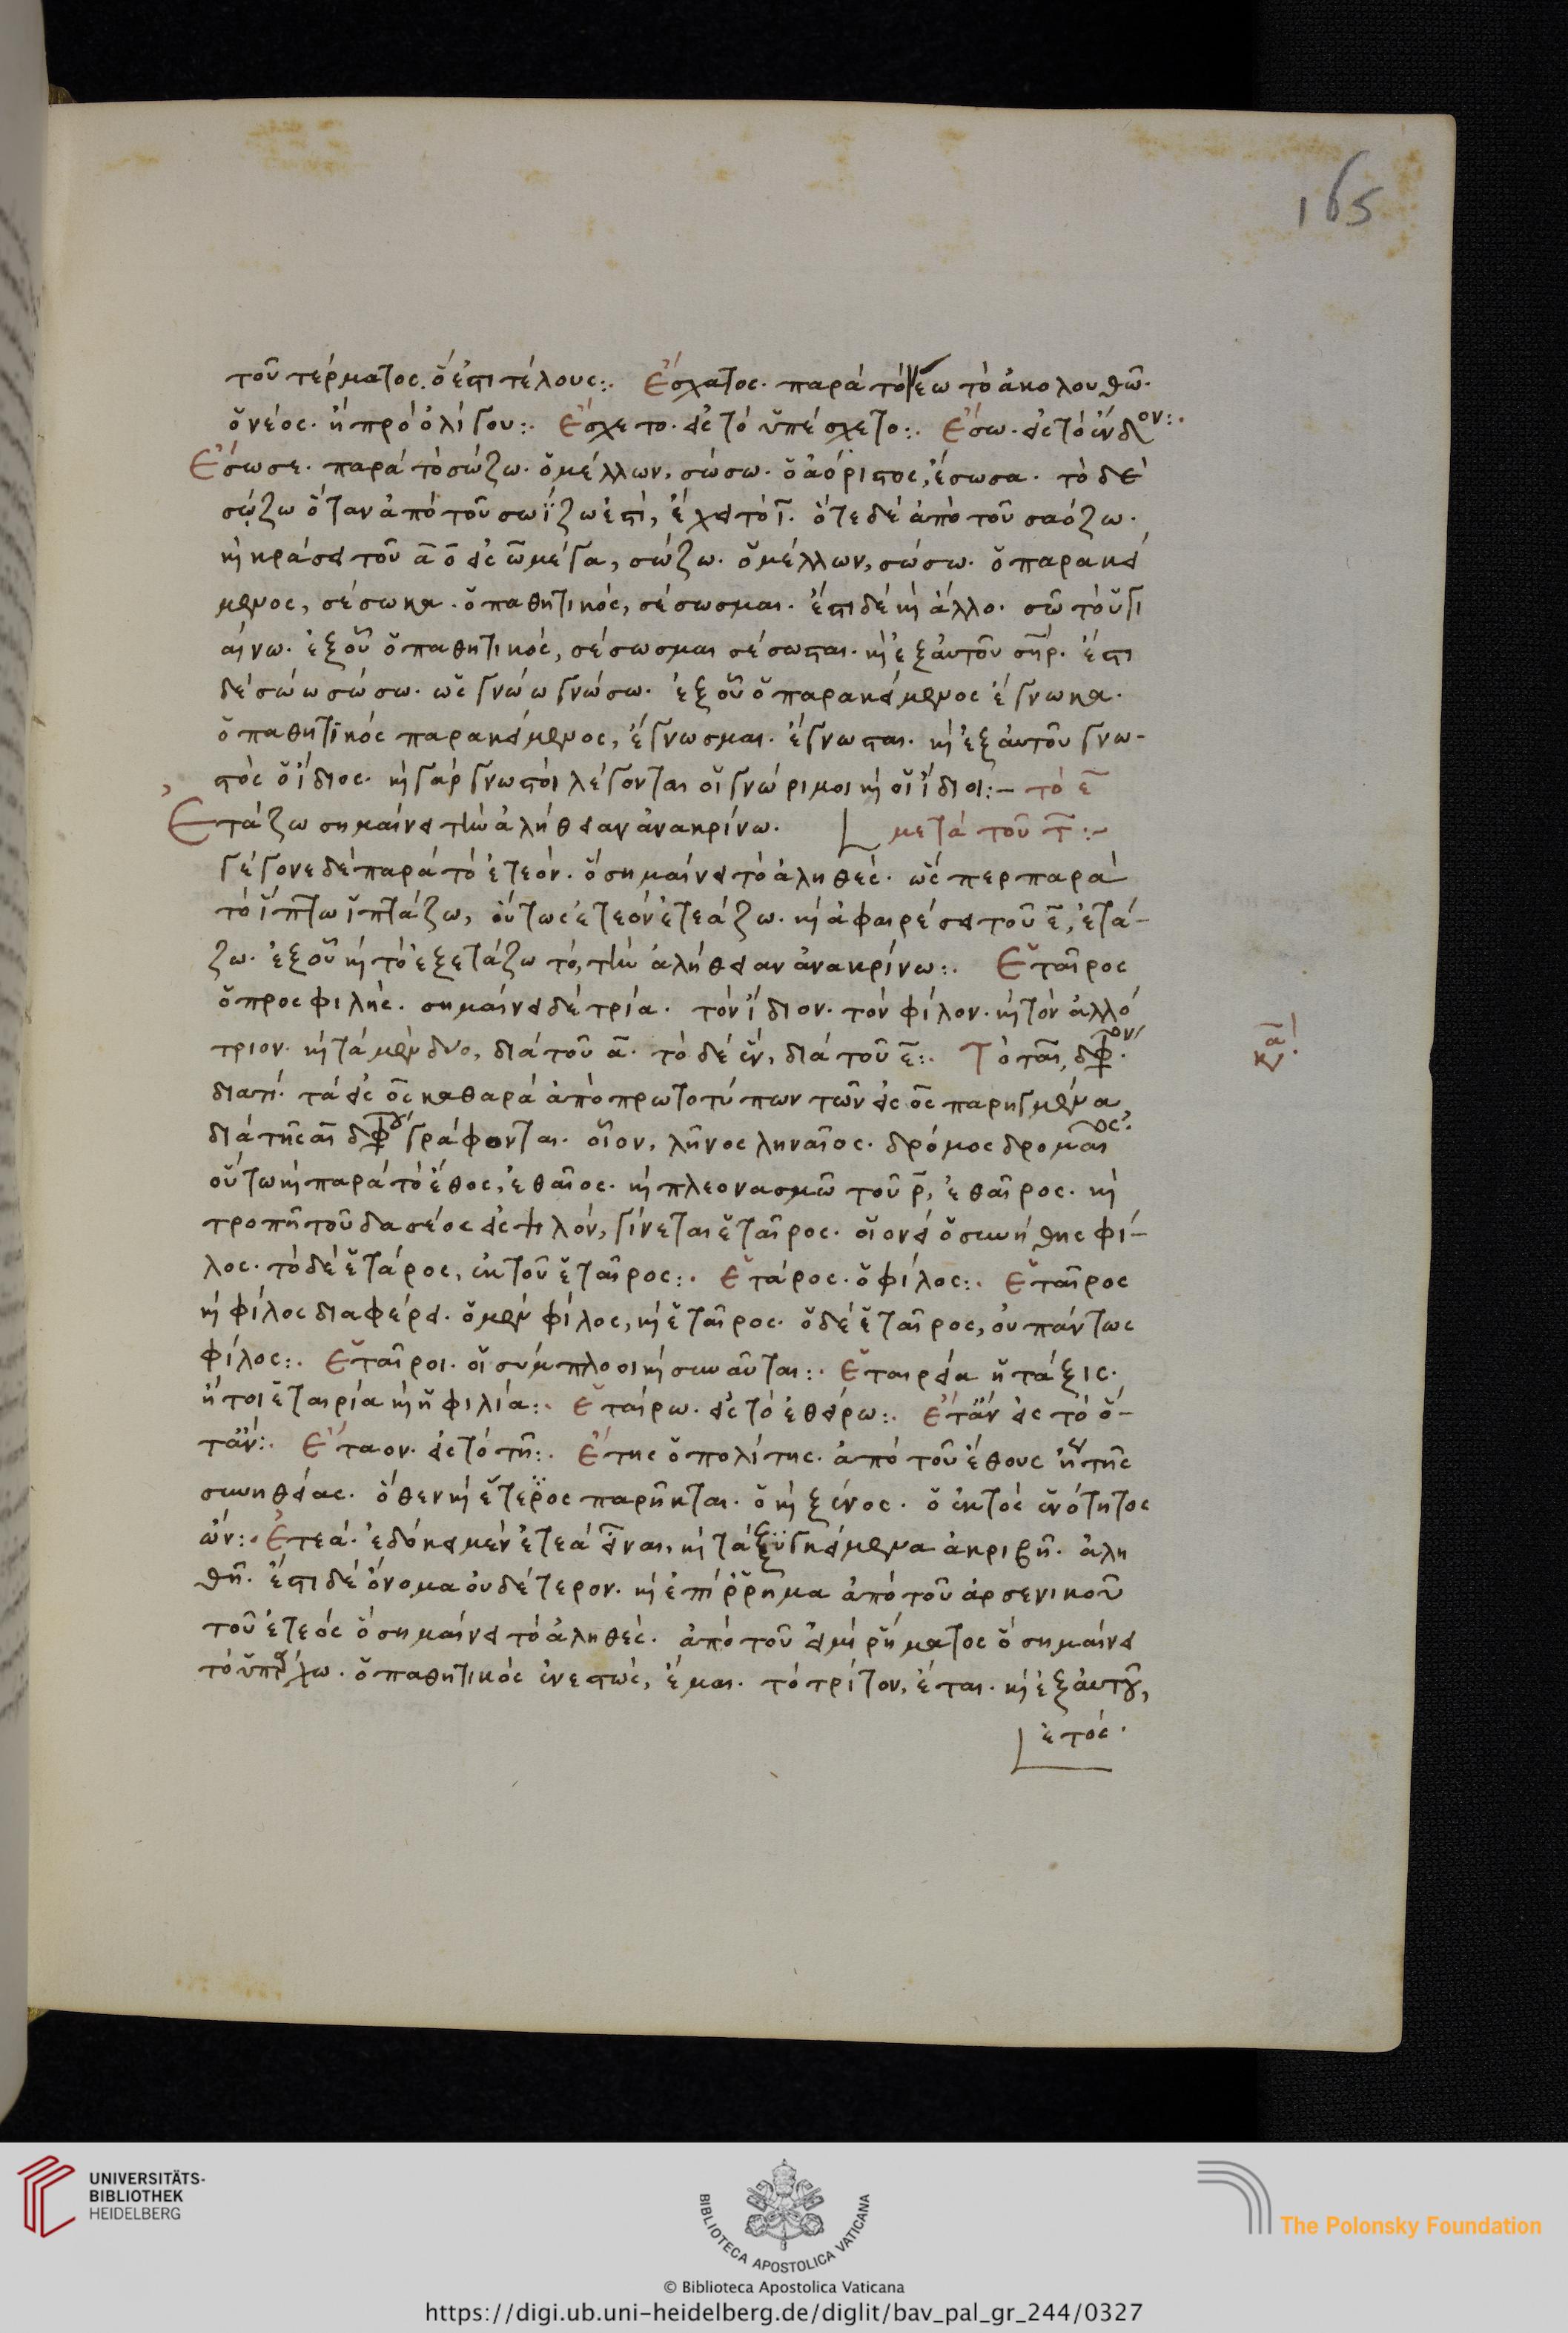 165
τοῦ τέρματος. ὅ ἐστι τέλους:. Ἔσχατος. παρὰ τὸ ἕω τὸ ἀκολουθῶ.
ὁ νέος. ἢ πρὸ ὀλίγου:. Ἔσχετο. ἀντὶ τὸ ὑπέσχετο:. Ἔσω. εἰς τὸ ἔνδον:.
Ἔσωσε. παρὰ τὸ σώζω. ὁ μέλλων, σώσω. ὁ ἀόριστος, ἔσωσα. τὸ δὲ
σῴζω ὅταν ἀπὸ τοῦ σωΐζω ἐστὶ, ἔχει τὸ ῑ. ὅτε δὲ ἀπὸ τοῦ σαόζω.
κὴ κράσει τοῦ ᾱ ο̄ εἰς ω̄ μέγα, σώζω. ὁ μέλλων, σώσω. ὁ παρακεί
μενος, σέσωκα. ὁ παθητικὸς, σέσωσμαι. ἔστι δὲ κὴ ἄλλο. σῶ τὸ ὑγι
αίνω. ἐξ οὗ ὁ παθητικὸς, σέσωσμαι σέσωσται. κὴ ἐξ αὐτοῦ σῆρ. ἔστι
δὲ σώω σώσω. ὡς γνώω γνώσω. ἐξ οὗ ὁ παρακείμενος ἔγνωκα.
ὁ παθητικὸς παρακείμενος, ἔγνωσμαι. ἔγνωσται. κὴ ἐξ αὐτοῦ γνω-
στὸς ὁ ἴδιος. κὴ γὰρ γνωστοὶ λέγονται οἱ γνώριμοι κὴ οἱ ἴδιοι:- τὸ ε̄
Ἐτάζω σημαίνει τὴν ἀλήθειαν ἀνακρίνω. μετὰ τοῦ τ̄:-
γέγονε δὲ παρὰ τὸ ἐτεόν. ὃ σημαίνει τὸ ἀληθές. ὥς περ παρὰ
τὸ ἵπτω ἱπτάζω, οὕτως ἐτεόν ἐτεάζω. κὴ ἀφαιρέσει τοῦ ε̄, ἐτά-
ζω. ἐξ οὗ κὴ τὸ ἐξετάζω τό, τὴν ἀλήθειαν ἀνακρίνω:. Ἑταῖρος
ὁ προσφιλής. σημαίνει δὲ τρία. τὸν ἴδιον. τὸν φίλον. κὴ τὸν ἀλλό
τριον. κὴ τὰ μὲν δύο, διὰ τοῦ ᾱ. τὸ δὲ ἓν, διὰ τοῦ ε̄:. Τὸ ται, δφον.
διατί. τὰ εἰς ος καθαρὰ ἀπὸ πρωτοτύπων τῶν εἰς ος παρηγμένα,
διὰ τῆς αι δφου γράφονται. οἷον, λῆνος ληναῖος. δρόμος δρομαῖος.
οὕτω κὴ παρὰ τὸ ἔθος, ἐθαῖος. κὴ πλεονασμῶ τοῦ ρ̄, ἐθαῖρος. κὴ
τροπῆ τοῦ δασέος εἰς ψιλόν, γίνεται ἑταῖρος. οἱονεὶ ὁ συνήθης φί-
λος. τὸ δὲ ἑτάρος, ἐκ τοῦ ἑταῖρος:. Ἑτάρος. ὁ φίλος:. Ἑταῖρος
κὴ φίλος διαφέρει. ὁ μὲν φίλος, κὴ ἑταῖρος. ὁ δὲ ἑταῖρος, οὐ πάντως
φίλος:. Ἑταῖροι. οἱ σύμπλοοι κὴ συνανται:. Ἑταιρεία ἡ τάξις.
ἤτοι ἑταιρία κὴ ἡ φιλία:. Ἑταίρω. εἰς τὸ ἐθείρω:. Ἐτᾶν εἰς τὸ ὅ-
ταν:. Ἔταον. εἰς τὸ τῆ:. Ἔτης ὁ πολίτης. ἀπὸ τοῦ ἔθους ἢ τῆς
συνηθείας. ὅθεν κὴ ἕτερος παρῆκται. ὁ κὴ ξένος. ὁ ἐκτὸς ἑνότητος
ὤν:. Ἐτεά. ἐδόκει μὲν ἐτεὰ εἶναι, κὴ τὰ ἐξυγκείμενα ἀκριβῆ. ἀλη
θῆ. ἔστι δὲ ὄνομα οὐδέτερον. κὴ ἐπίρρημα ἀπὸ τοῦ ἀρσενικοῦ
τοῦ ἐτεὸς ὃ σημαίνει τὸ ἀληθές. ἀπὸ τοῦ εἰμὶ ῥήματος ὃ σημαίνει
τὸ ὑπάρχω. ὁ παθητικὸς ἐνεστώς, ἔμαι. τὸ τρίτον, ἔται. κὴ ἐξ αὐτοῦ,
ἐτός.
UNIVERSITÄTS-
BIBLIOTHEK
HEIDELBERG
BIBLIOTECA APOSTOLICA VATICANA
The Polonsky Foundation
© Biblioteca Apostolica Vaticana
https://digi.ub.uni-heidelberg.de/diglit/bav_pal_gr_244/0327